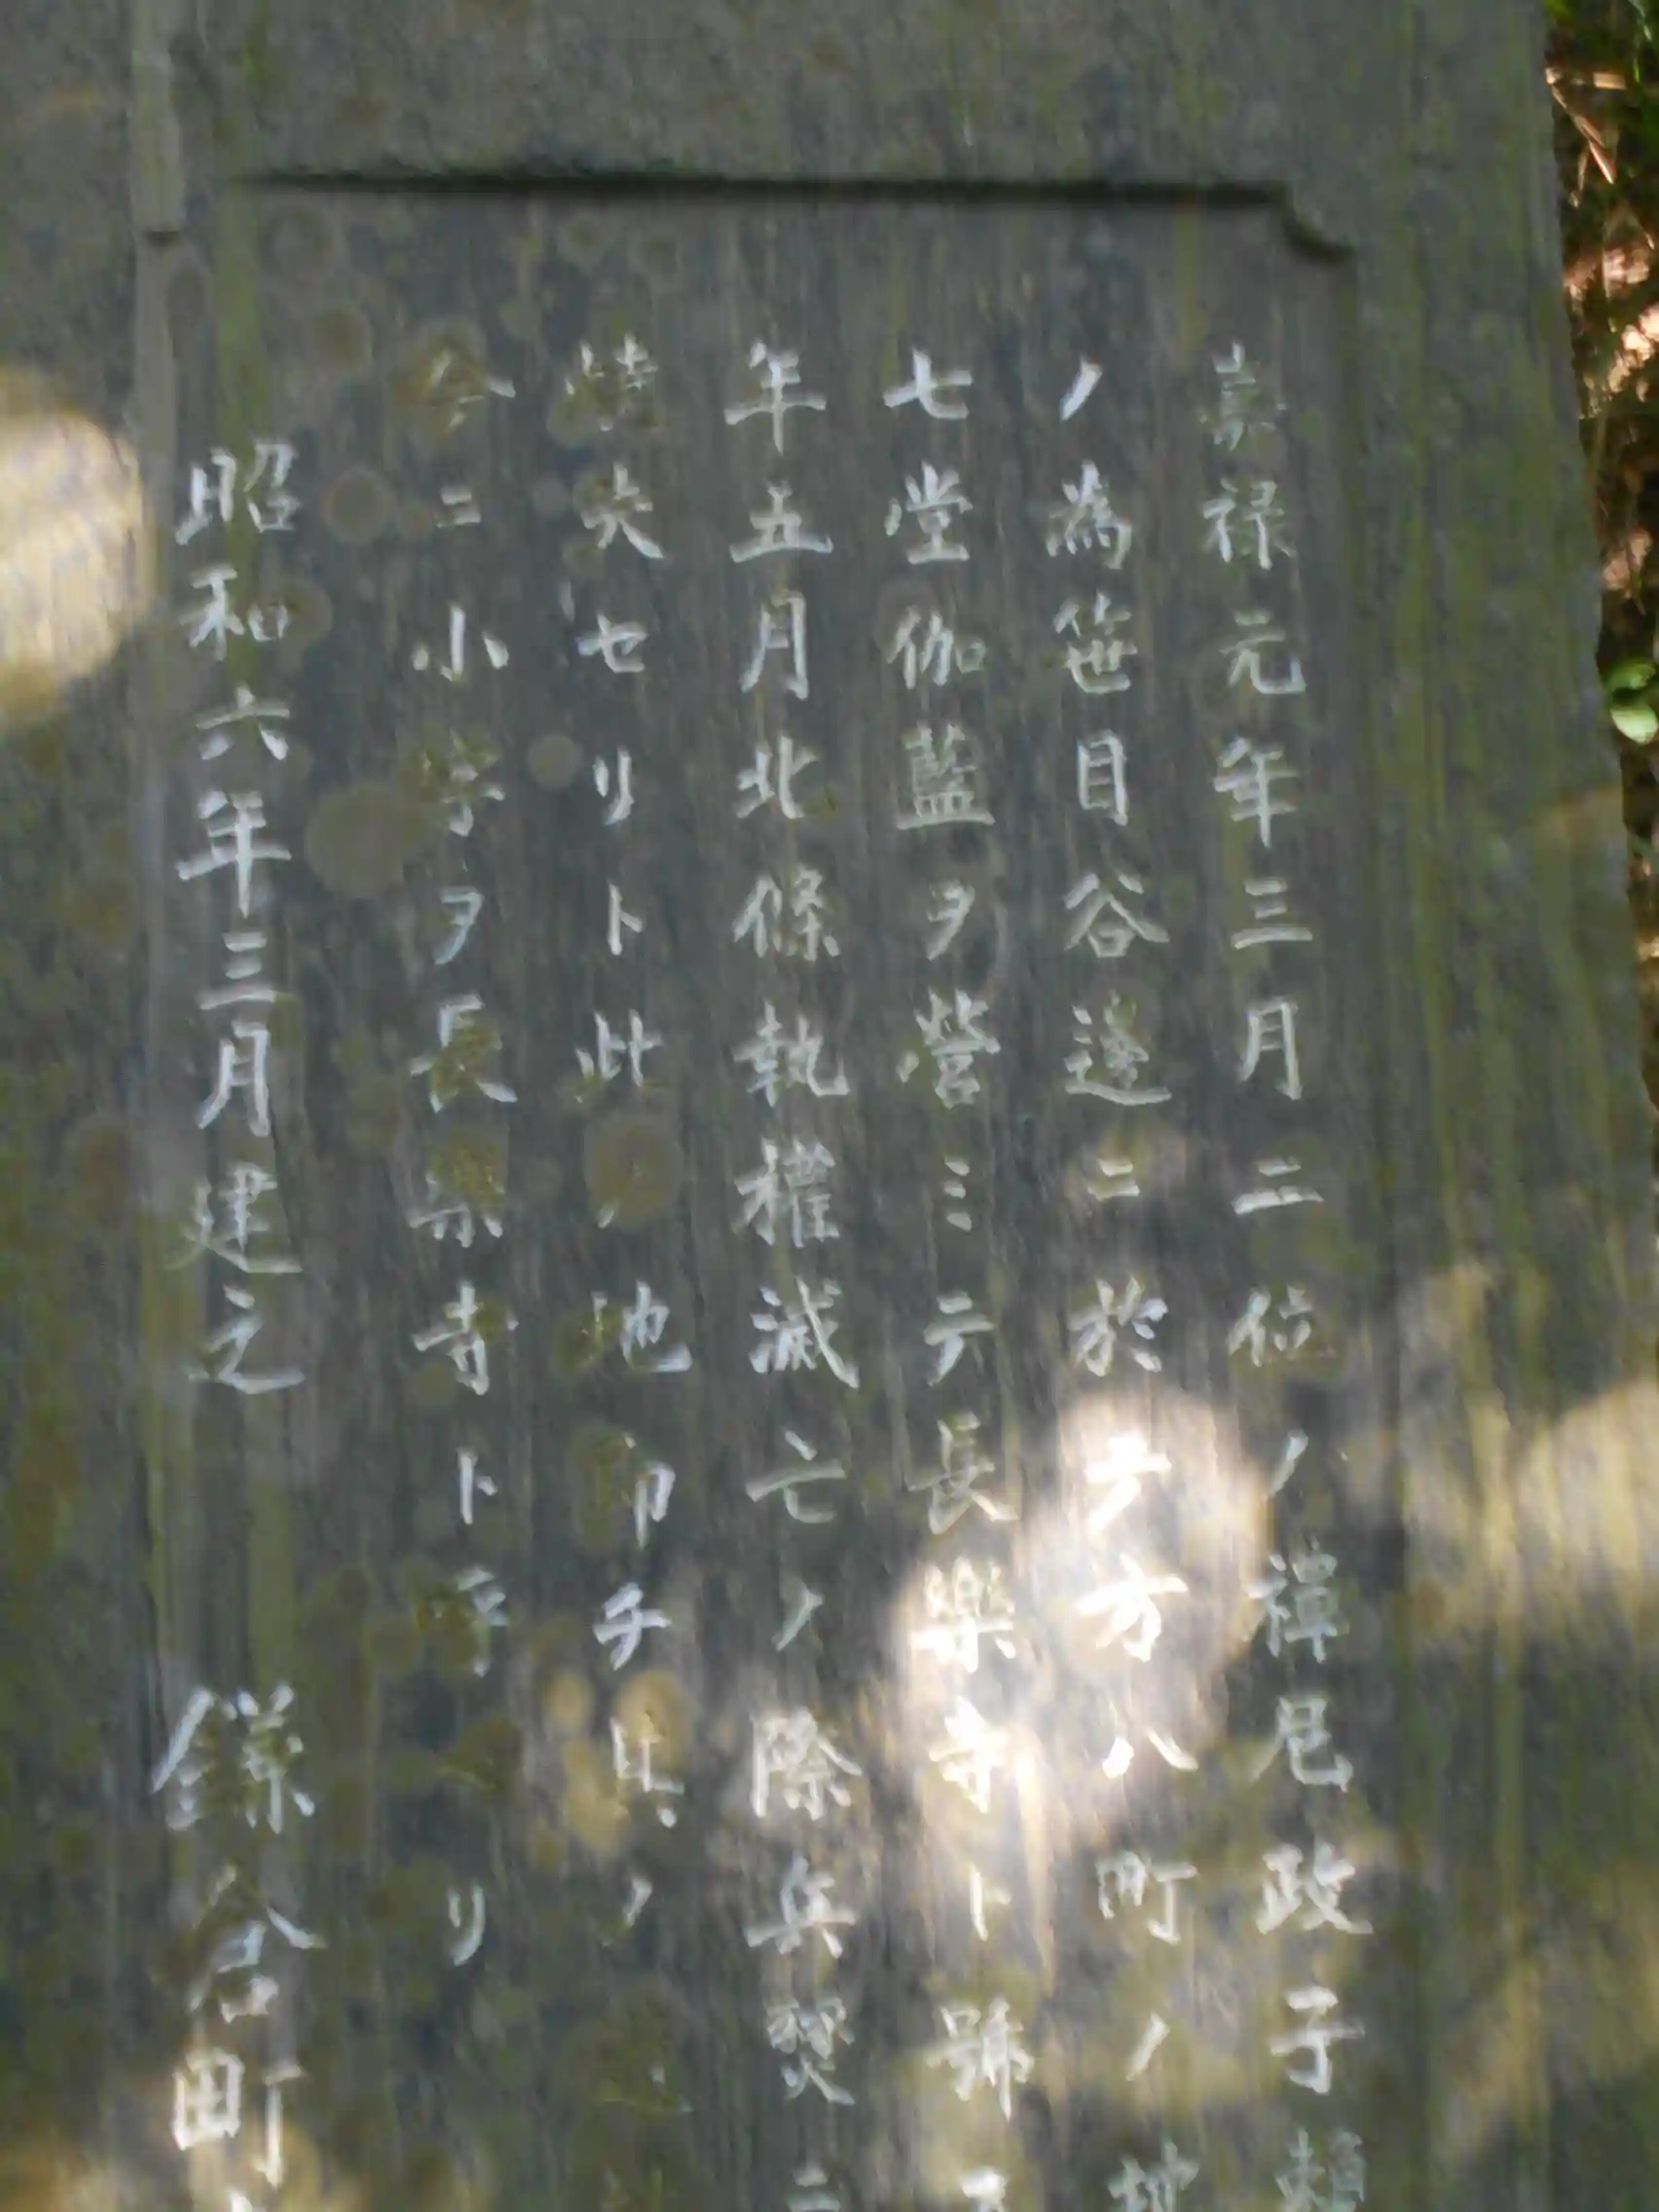 嘉禄元年三月二位ノ禅尼政子頼
ノ為笹目谷邊ニ於テ方八町ノ地
七堂伽藍ヲ營ミテ長樂寺ト號
年五月北條執權滅亡ノ際兵燹ニ
焼失セリト此ノ地即チ其ノ
今ニ小字ヲ長樂寺ト呼ベリ
昭和六年三月建之 鎌倉町